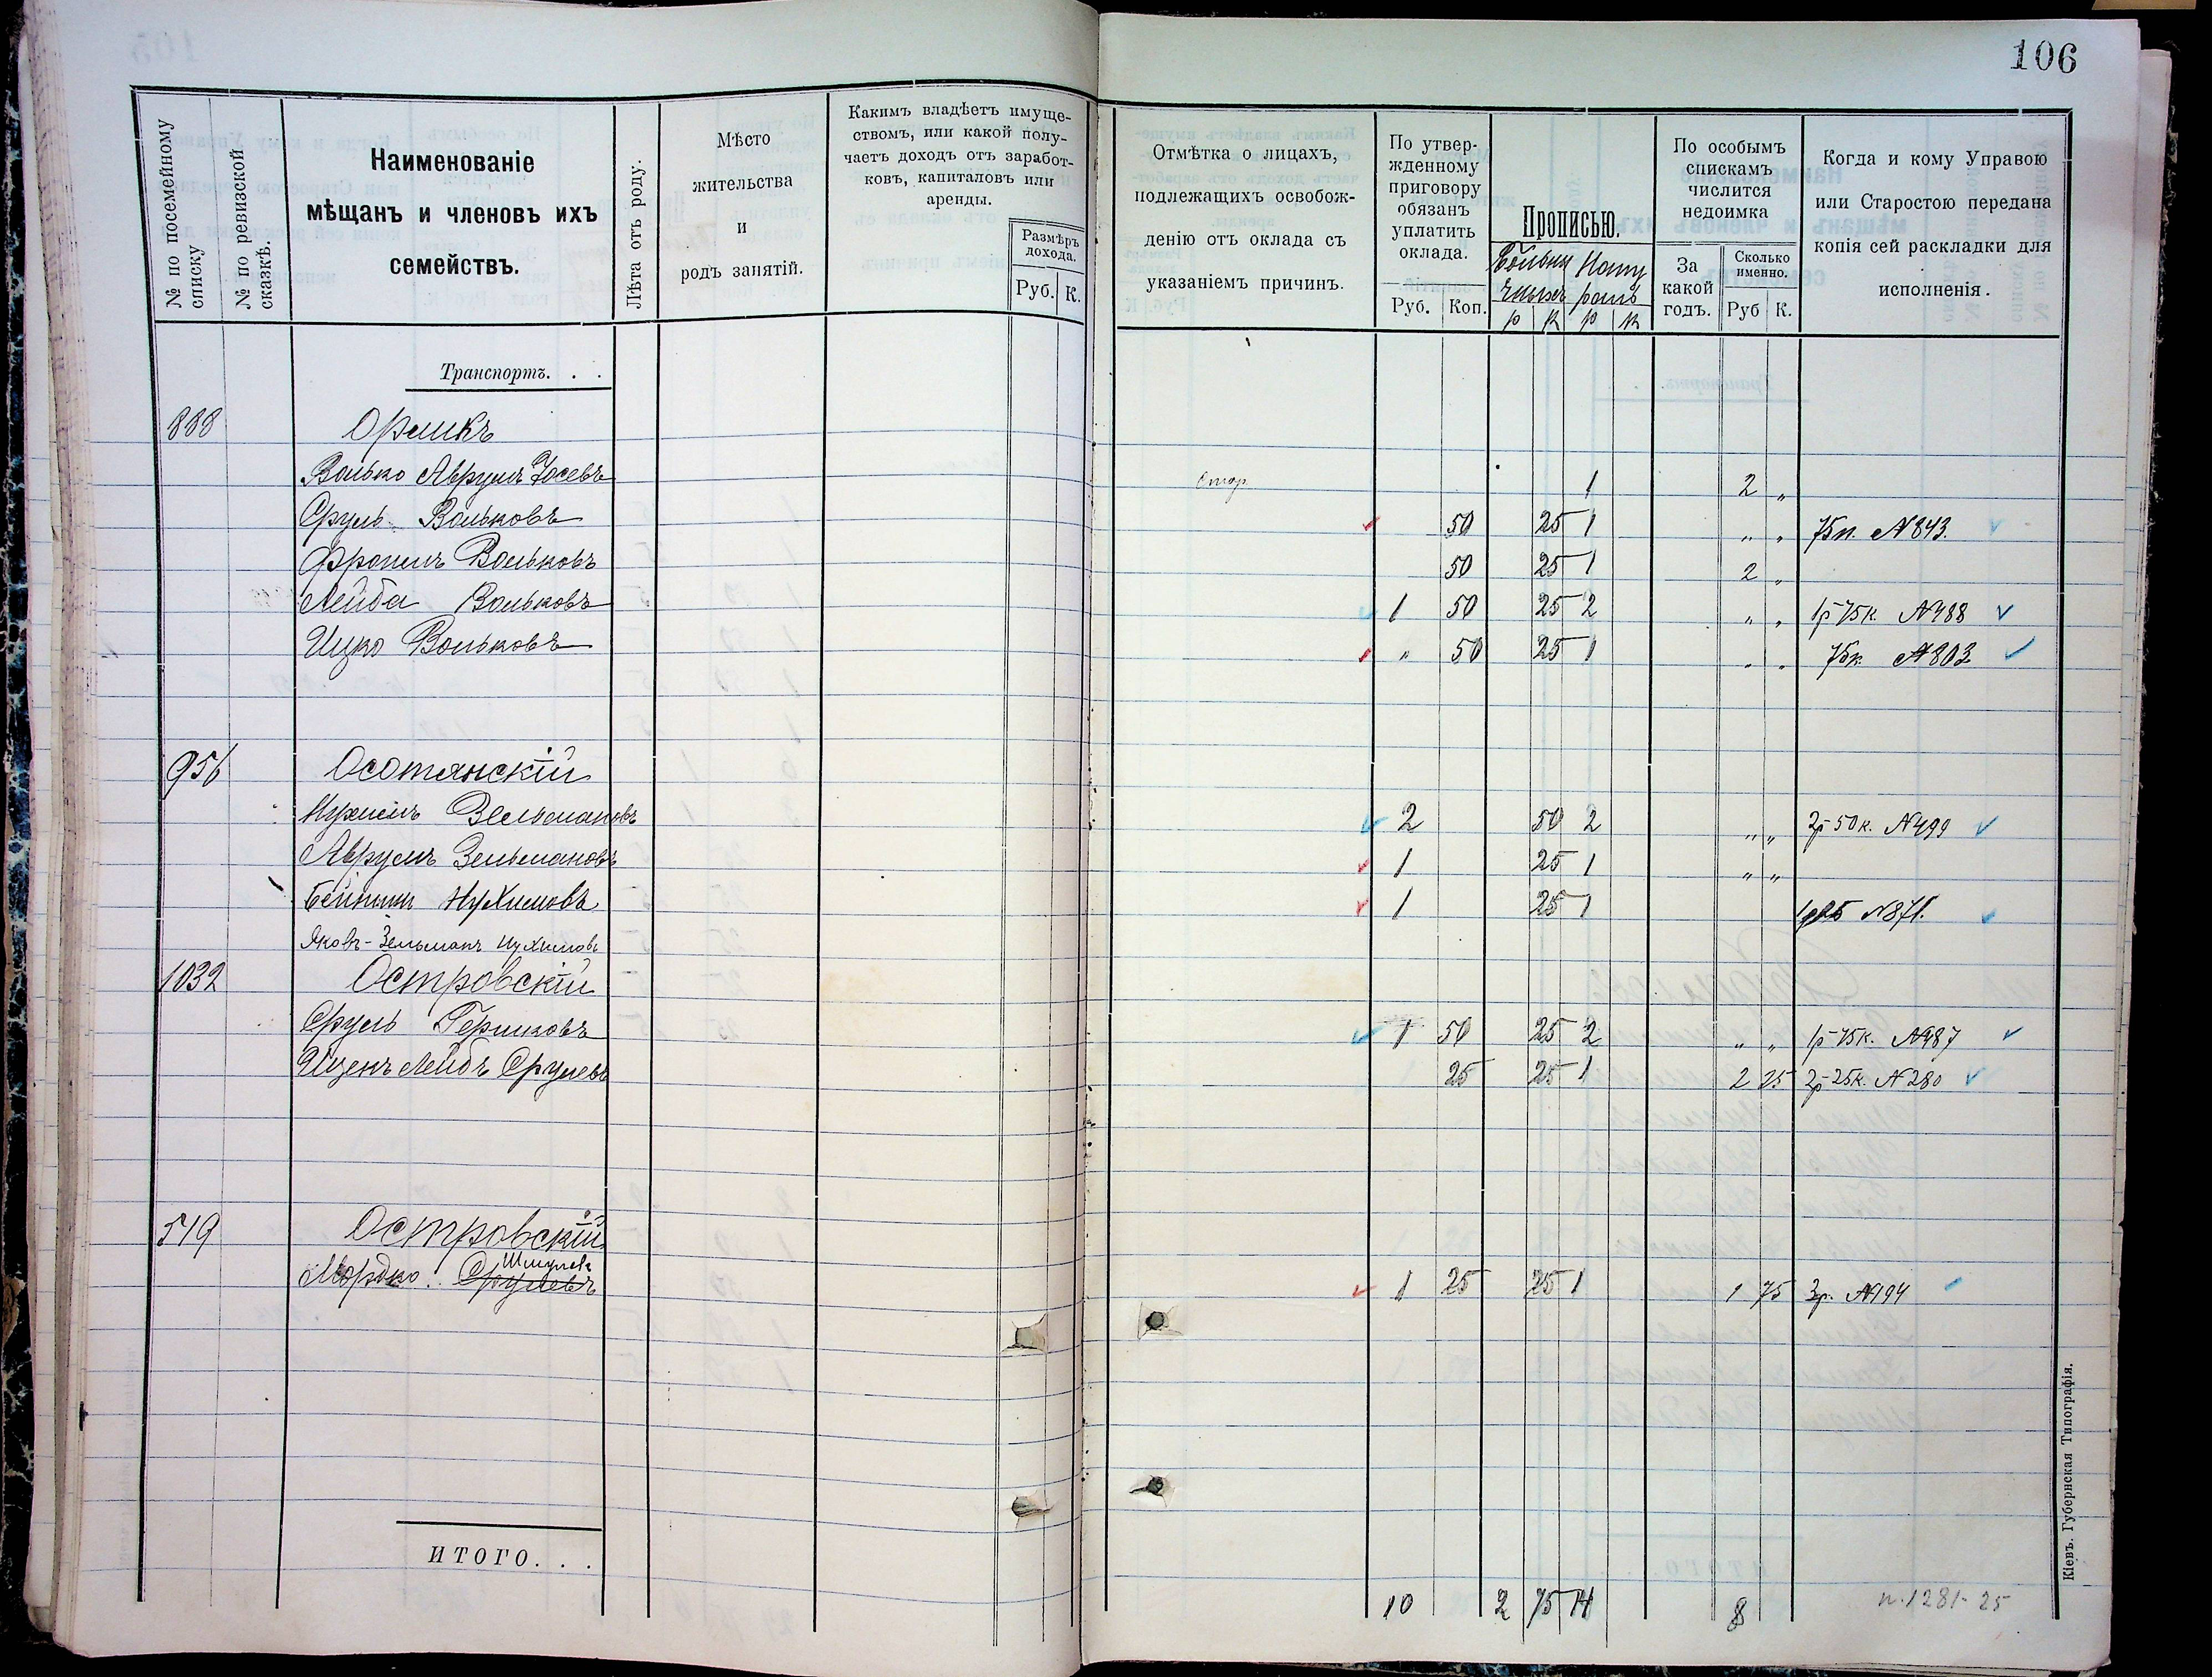 106
№ по посемейному списку
№ по ревизской сказкѣ.
Наименованіе
мѣщанъ и членовъ ихъ
семействъ.
Лѣта отъ роду.
Мѣсто
жительства
и
родъ занятій.
Какимъ владѣетъ имуще-
ствомъ, или какой полу-
чаетъ доходъ отъ заработ-
ковъ, капиталовъ или
аренды.
Размѣръ
дохода.
Руб. К.
Отмѣтка о лицахъ,
подлежащихъ освобож-
денію отъ оклада съ
указаніемъ причинъ.
По утвер-
жденному
приговору
обязанъ
уплатить
оклада.
Руб. Коп.
Прописью.
р к р к
По особымъ
спискамъ
числится
недоимка
За
какой
годъ.
Сколько
именно.
Руб К.
Когда и кому Управою
или Старостою передана
копія сей раскладки для
исполненія.
Транспортъ. . .
888 Орликъ
Волько Аврумъ Іосевъ 1 2 „
Сруль Вольковъ 50 25 1 „ „ 75к. N 843.
Фроимъ Вольковъ 50 25 1 2 „
Лейба Вольковъ 1 50 25 2 „ „ 1р 75к. N 488
Ицко Вольковъ „ 50 25 1 „ „ 75к N 803
956 Осотянскій
Нухимъ Зельмановъ 2 50 2 „ „ 2р 50к. N 499
Аврумъ Зельмановъ 1 25 1 „ „
Бейнишъ Нухимовъ 1 25 1 N 871.
Яковъ-Зельманъ Нухимовъ
1032 Островскій
Сруль Гершковъ 1 50 25 2 „ „ 1р 75к. N 487
Ицекъ Лейбъ Срулевъ 25 25 1 2 25 2р 25к. N 280
519 Островскій
Шмулевъ
Мордко Срулевъ 1 25 25 1 1 75 3р. N 194
ИТОГО. . .
10 2 75 14 8 п. 1281-25
Кіевъ. Губернская Типографія.